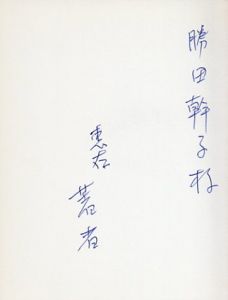 勝田幹子様
恵存
著者